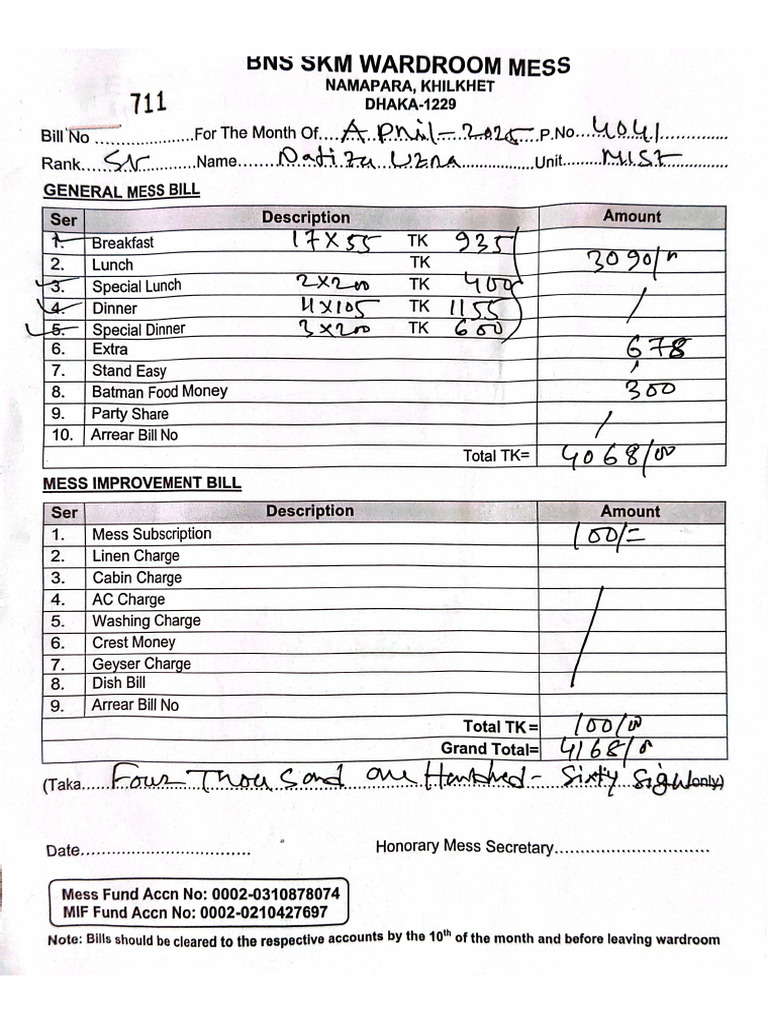 BNS SKM WARDROOM MESS
NAMAPARA, KHILKHET
DHAKA-1229
Bill No 711 For The Month Of April-2025 P.No 4041
Rank Name Unit MIST
GENERAL MESS BILL
Ser Description Amount
1. Breakfast 17 x 55 TK 935
2. Lunch TK 3090/
3. Special Lunch 2x200 TK 400
4. Dinner 11x105 TK 1155
5. Special Dinner 3x200 TK 600
6. Extra 678
7. Stand Easy
8. Batman Food Money 300
9. Party Share
10. Arrear Bill No
Total TK= 4068/00
MESS IMPROVEMENT BILL
Ser Description Amount
1. Mess Subscription 100/=
2. Linen Charge
3. Cabin Charge
4. AC Charge
5. Washing Charge
6. Crest Money
7. Geyser Charge
8. Dish Bill
9. Arrear Bill No
Total TK= 100/00
Grand Total= 4168/
(Taka Four Thousand one Hundred - Sixty only)
Date Honorary Mess Secretary
Mess Fund Accn No: 0002-0310878074
MIF Fund Accn No: 0002-0210427697
Note: Bills should be cleared to the respective accounts by the 10th of the month and before leaving wardroom